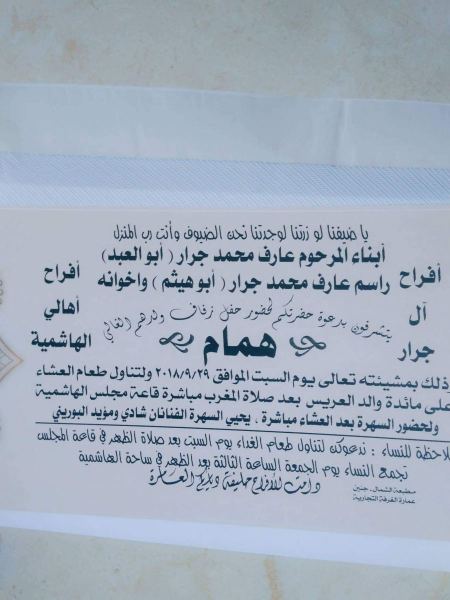 يا ضيفنا لو زرتنا لوجدتنا نحن الضيوف وأنت رب المنزل
أبناء المرحوم عارف محمد جرار (أبو العبد)
راسم عارف محمد جرار (أبو هيثم) واخوانه
أفراح
آل
جرار
أفراح
أهالي
الهاشمية
يتشرفون بدعوة حضرتكم لحضور حفل زفاف ولدهم الغالي
همام
وذلك بمشيئته تعالى يوم السبت الموافق ٢٠١٨/٩/٢٩ ولتناول طعام العشاء
على مائدة والد العريس بعد صلاة المغرب مباشرة قاعة مجلس الهاشمية
ولحضور السهرة بعد العشاء مباشرة . يحيي السهرة الفنانان شادي ومؤيد البوريني
ملاحظة للنساء : ندعوكن لتناول طعام الغداء يوم السبت بعد صلاة الظهر في قاعة المجلس
تجمع النساء يوم الجمعة الساعة الثالثة بعد الظهر في ساحة الهاشمية
دامت الأفراح حليفة دياركم العامرة
مطبعة الشمال - جنين
عمارة الغرفة التجارية